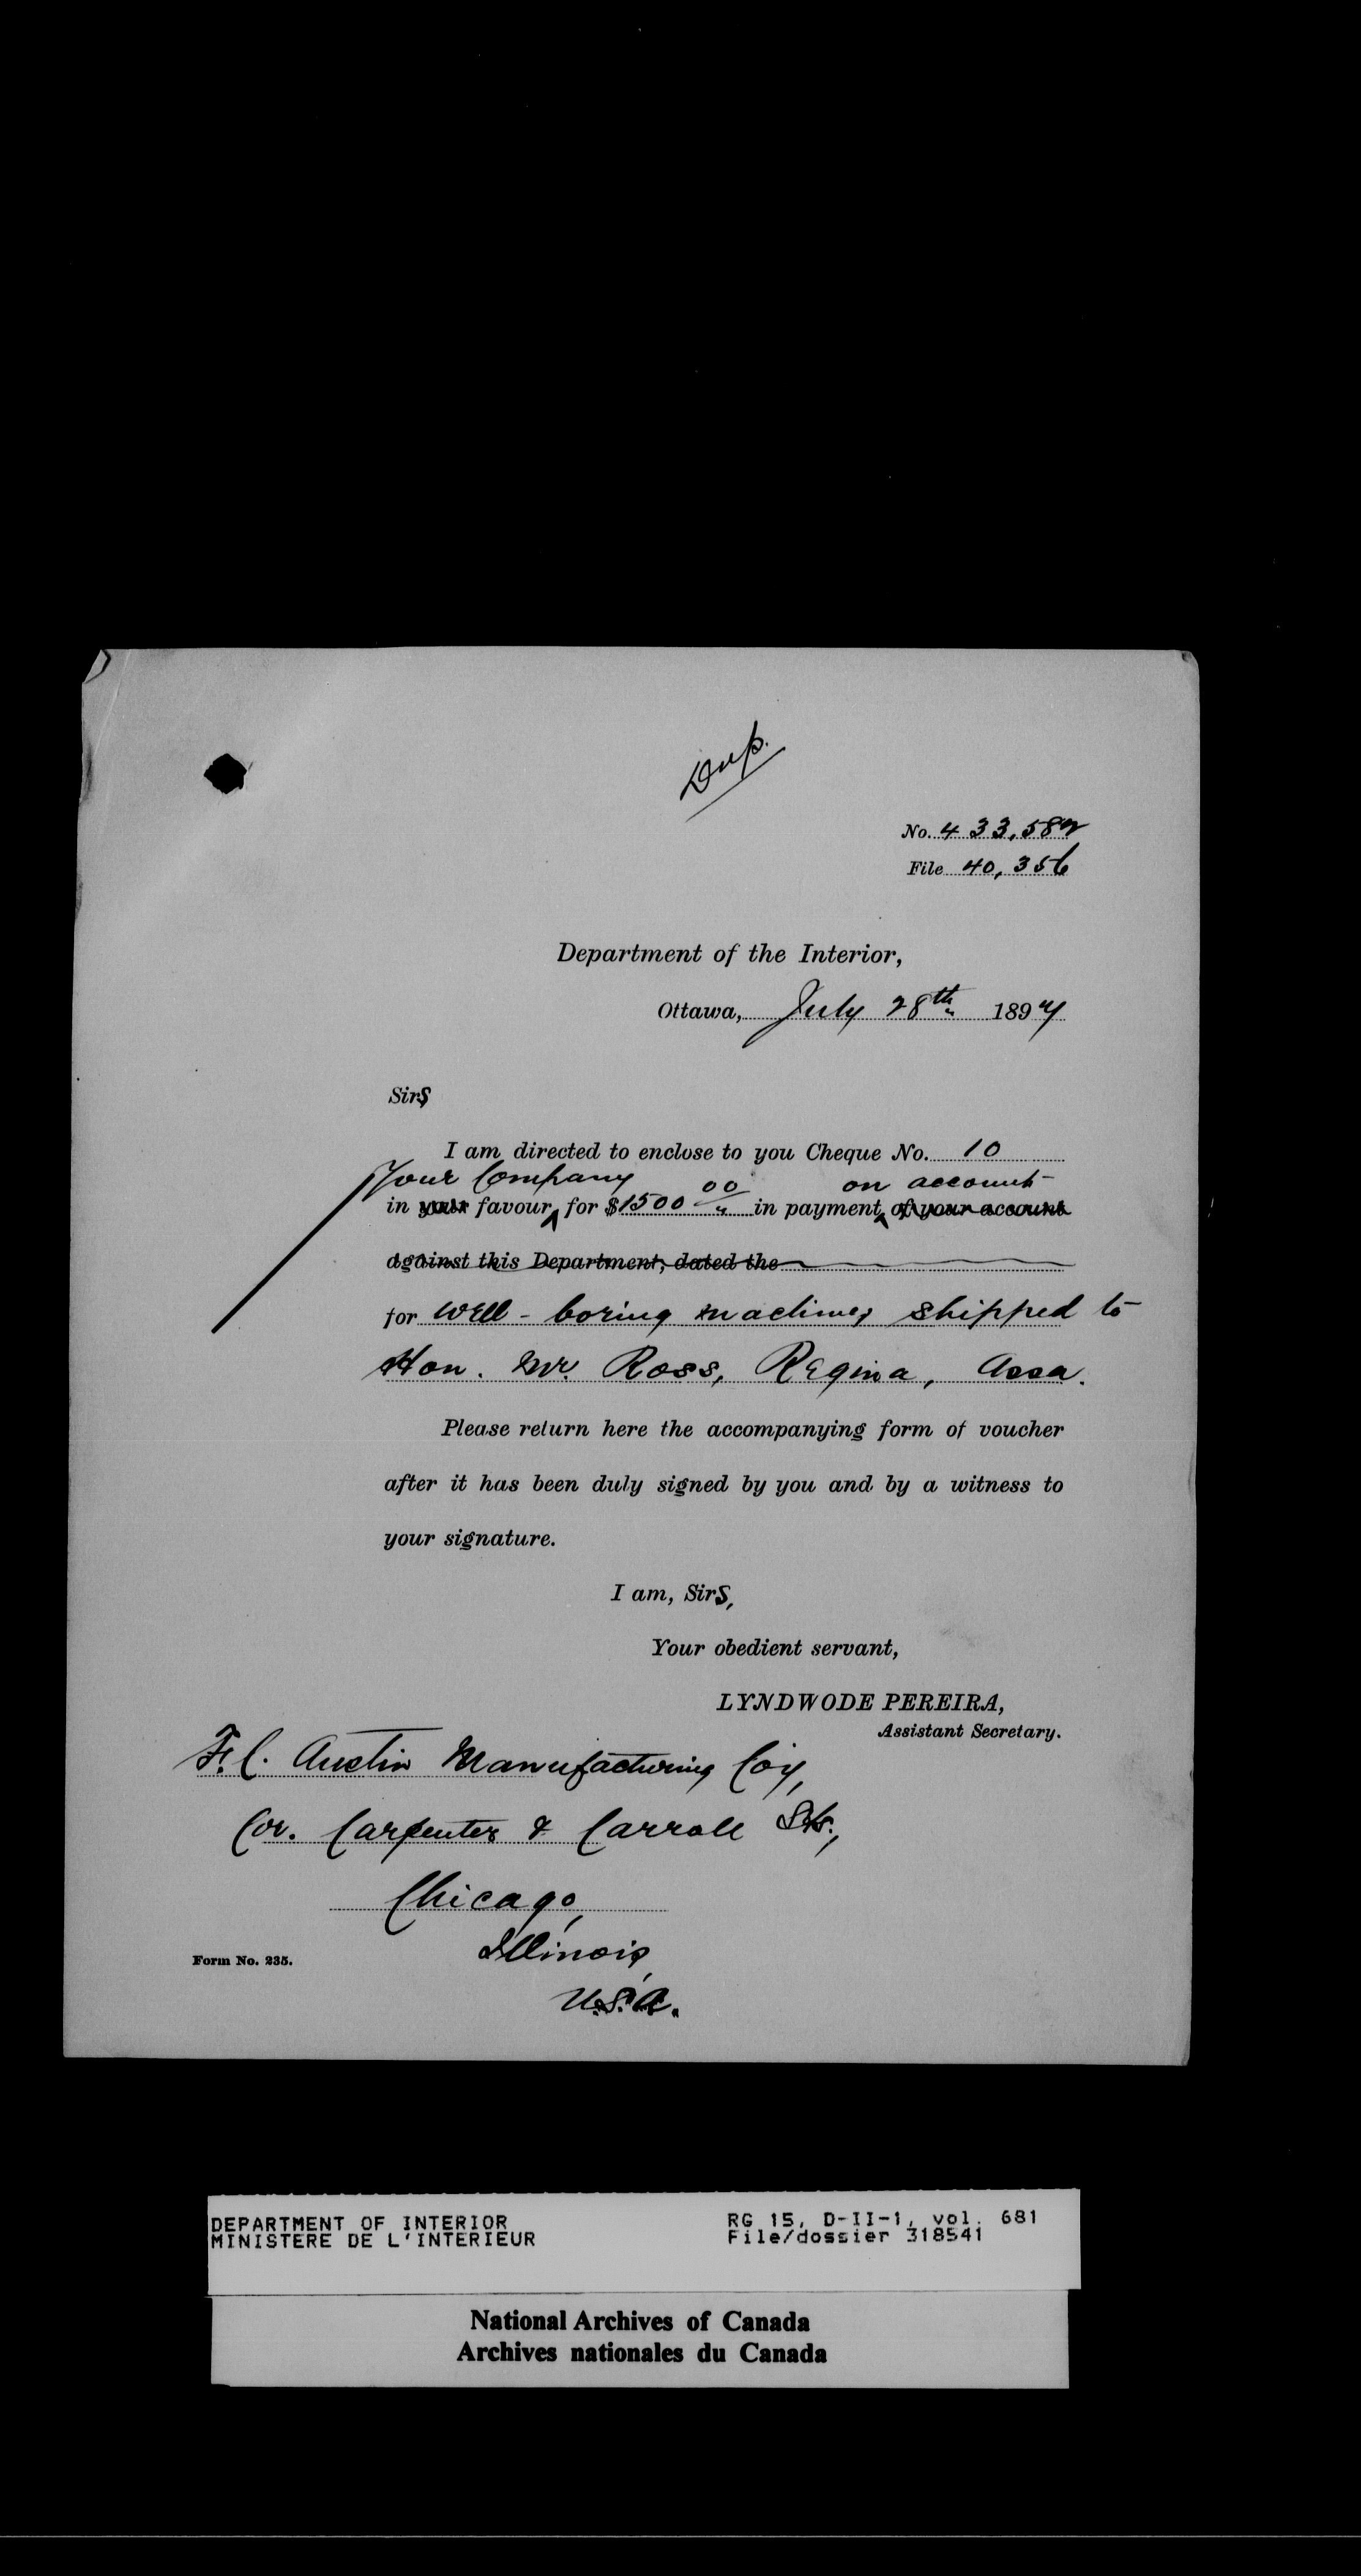 Dup.
No. 433,582
File 40,356
Department of the Interior,
Ottawa, July 28th 1897
Sirs
I am directed to enclose to you Cheque No. 10
your Company on account
in your favour, for $1500 00 in payment, of your account
against this Department, dated the
for well-boring machines shipped to
Hon. Mr. Ross, Regina, Assa.
Please return here the accompanying form of voucher
after it has been duly signed by you and by a witness to
your signature.
I am, Sirs,
Your obedient servant,
LYNDWODE PEREIRA,
Assistant Secretary.
F.C. Austin Manufacturing Coy,
Cor. Carpenter & Carroll Sts.,
Chicago,
Illinois,
U.S.A.
Form No. 235.
DEPARTMENT OF INTERIOR RG 15, D-II-1, vol. 681
MINISTERE DE L'INTERIEUR File/dossier 318541
National Archives of Canada
Archives nationales du Canada